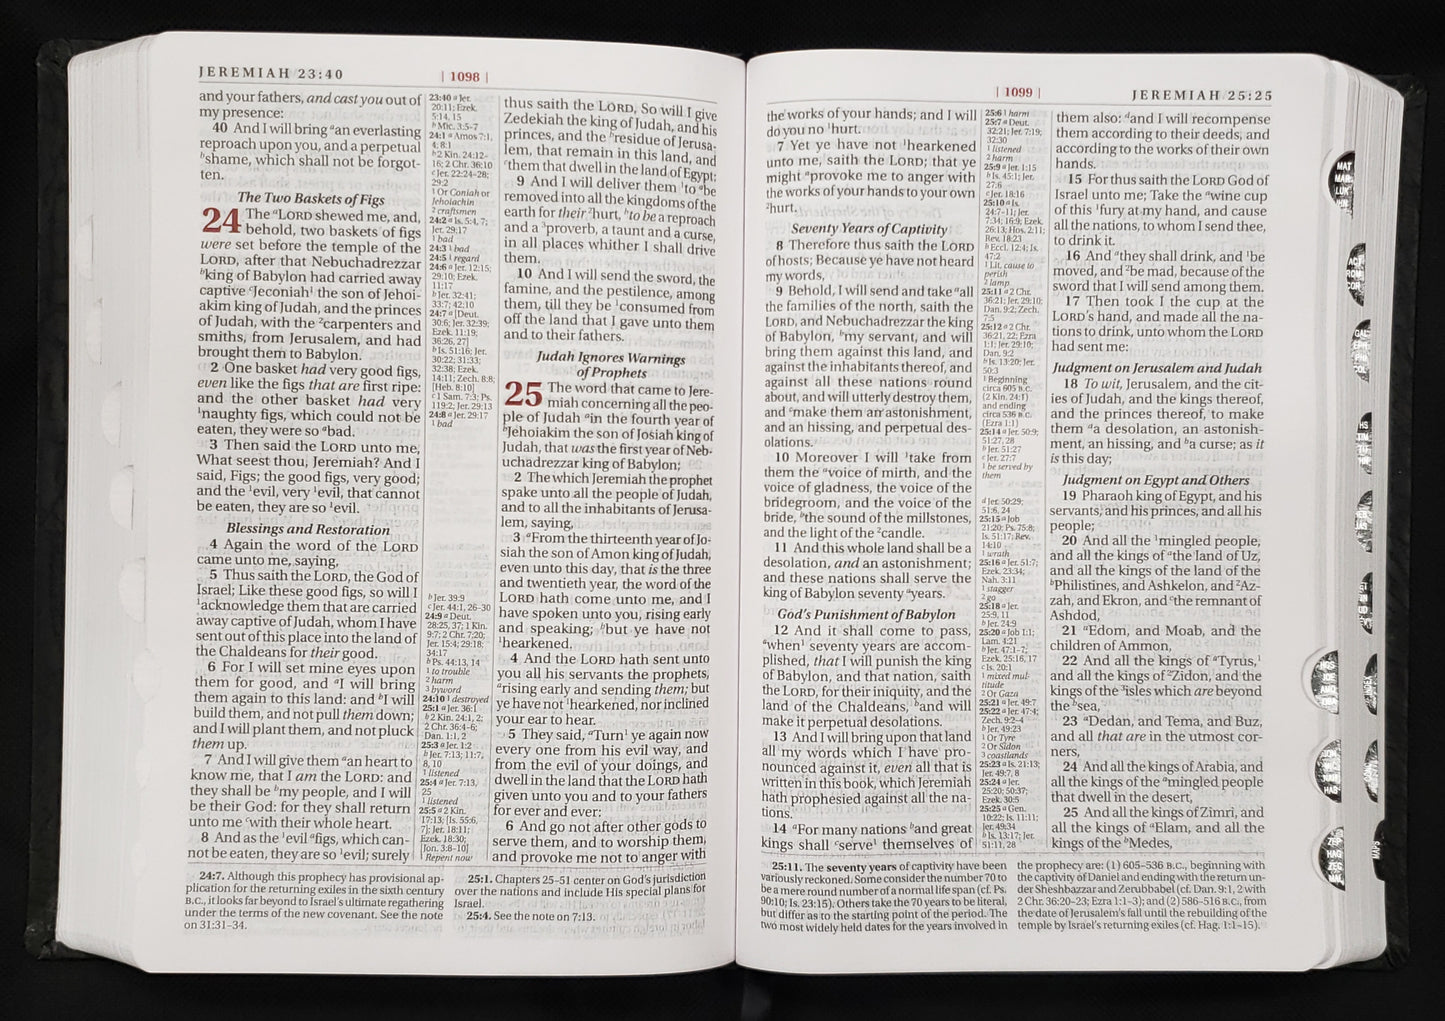 JEREMIAH 23:40
| 1098 |
and your fathers, and cast you out of
my presence:
40 And I will bring aan everlasting
reproach upon you, and a perpetual
bshame, which shall not be forgot-
ten.
The Two Baskets of Figs
24 The aLORD shewed me, and,
behold, two baskets of figs
were set before the temple of the
LORD, after that Nebuchadrezzar
bking of Babylon had carried away
captive cJeconiah1 the son of Jehoi-
akim king of Judah, and the princes
of Judah, with the 2carpenters and
smiths, from Jerusalem, and had
brought them to Babylon.
2 One basket had very good figs,
even like the figs that are first ripe:
and the other basket had very
1naughty figs, which could not be
eaten, they were so abad.
3 Then said the LORD unto me,
What seest thou, Jeremiah? And I
said, Figs; the good figs, very good;
and the 1evil, very 1evil, that cannot
be eaten, they are so 1evil.
Blessings and Restoration
4 Again the word of the LORD
came unto me, saying,
5 Thus saith the LORD, the God of
Israel; Like these good figs, so will I
1acknowledge them that are carried
away captive of Judah, whom I have
sent out of this place into the land of
the Chaldeans for their good.
6 For I will set mine eyes upon
them for good, and aI will bring
them again to this land: and bI will
build them, and not pull them down;
and I will plant them, and not pluck
them up.
7 And I will give them aan heart to
know me, that I am the LORD: and
they shall be bmy people, and I will
be their God: for they shall return
unto me cwith their whole heart.
8 And as the 1evil afigs, which can-
not be eaten, they are so 1evil; surely
23:40 a Jer.
20:11; Ezek.
5:14, 15
b Mic. 3:5-7
24:1 a Amos 7:1,
4; 8:1
b 2 Kin. 24:12-
16; 2 Chr. 36:10
c Jer. 22:24-28;
29:2
1 Or Coniah or
Jehoiachin
2 craftsmen
24:2 a Is. 5:4, 7;
Jer. 29:17
1 bad
24:3 1 bad
24:5 1 regard
24:6 a Jer. 12:15;
29:10; Ezek.
11:17
b Jer. 32:41;
33:7; 42:10
24:7 a [Deut.
30:6; Jer. 32:39;
Ezek. 11:19;
36:26, 27]
b Is. 51:16; Jer.
30:22; 31:33;
32:38; Ezek.
14:11; Zech. 8:8;
[Heb. 8:10]
c 1 Sam. 7:3; Ps.
119:2; Jer. 29:13
24:8 a Jer. 29:17
1 bad
b Jer. 39:9
c Jer. 44:1, 26-30
24:9 a Deut.
28:25, 37; 1 Kin.
9:7; 2 Chr. 7:20;
Jer. 15:4; 29:18;
34:17
b Ps. 44:13, 14
1 to trouble
2 harm
3 byword
24:10 1 destroyed
25:1 a Jer. 36:1
b 2 Kin. 24:1, 2;
2 Chr. 36:4-6;
Dan. 1:1, 2
25:3 a Jer. 1:2
b Jer. 7:13; 11:7,
8, 10
1 listened
25:4 a Jer. 7:13,
25
1 listened
25:5 a 2 Kin.
17:13; [Is. 55:6,
7]; Jer. 18:11;
Ezek. 18:30;
[Jon. 3:8-10]
1 Repent now
thus saith the LORD, So will I give
Zedekiah the king of Judah, and his
princes, and the bresidue of Jerusa-
lem, that remain in this land, and
cthem that dwell in the land of Egypt:
9 And I will deliver them 1to abe
removed into all the kingdoms of the
earth for their 2hurt, bto be a reproach
and a 3proverb, a taunt and a curse,
in all places whither I shall drive
them.
10 And I will send the sword, the
famine, and the pestilence, among
them, till they be 1consumed from
off the land that I gave unto them
and to their fathers.
Judah Ignores Warnings
of Prophets
25 The word that came to Jere-
miah concerning all the peo-
ple of Judah ain the fourth year of
bJehoiakim the son of Josiah king of
Judah, that was the first year of Neb-
uchadrezzar king of Babylon;
2 The which Jeremiah the prophet
spake unto all the people of Judah,
and to all the inhabitants of Jerusa-
lem, saying,
3 aFrom the thirteenth year of Jo-
siah the son of Amon king of Judah,
even unto this day, that is the three
and twentieth year, the word of the
LORD hath come unto me, and I
have spoken unto you, rising early
and speaking; bbut ye have not
1hearkened.
4 And the LORD hath sent unto
you all his servants the prophets,
arising early and sending them; but
ye have not 1hearkened, nor inclined
your ear to hear.
5 They said, aTurn1 ye again now
every one from his evil way, and
from the evil of your doings, and
dwell in the land that the LORD hath
given unto you and to your fathers
for ever and ever:
6 And go not after other gods to
serve them, and to worship them,
and provoke me not to anger with
24:7. Although this prophecy has provisional ap-
plication for the returning exiles in the sixth century
B.C., it looks far beyond to Israel's ultimate regathering
under the terms of the new covenant. See the note
on 31:31–34.
25:1. Chapters 25–51 center on God's jurisdiction
over the nations and include His special plans for
Israel.
25:4. See the note on 7:13.
| 1099 |
JEREMIAH 25:25
the works of your hands; and I will
do you no 1hurt.
7 Yet ye have not 1hearkened
unto me, saith the LORD; that ye
might aprovoke me to anger with
the works of your hands to your own
2hurt.
Seventy Years of Captivity
8 Therefore thus saith the LORD
of hosts; Because ye have not heard
my words,
9 Behold, I will send and take aall
the families of the north, saith the
LORD, and Nebuchadrezzar the king
of Babylon, bmy servant, and will
bring them against this land, and
against the inhabitants thereof, and
against all these nations round
about, and will utterly destroy them,
and cmake them an astonishment,
and an hissing, and perpetual des-
olations.
10 Moreover I will 1take from
them the avoice of mirth, and the
voice of gladness, the voice of the
bridegroom, and the voice of the
bride, bthe sound of the millstones,
and the light of the 2candle.
11 And this whole land shall be a
desolation, and an astonishment;
and these nations shall serve the
king of Babylon seventy ayears.
God's Punishment of Babylon
12 And it shall come to pass,
awhen1 seventy years are accom-
plished, that I will punish the king
of Babylon, and that nation, saith
the LORD, for their iniquity, and the
land of the Chaldeans, band will
make it perpetual desolations.
13 And I will bring upon that land
all my words which I have pro-
nounced against it, even all that is
written in this book, which Jeremiah
hath prophesied against all the na-
tions.
14 aFor many nations band great
kings shall cserve1 themselves of
25:6 1 harm
25:7 a Deut.
32:21; Jer. 7:19;
32:30
1 listened
2 harm
25:9 a Jer. 1:15
b Is. 45:1; Jer.
27:6
c Jer. 18:16
25:10 a Is.
24:7-11; Jer.
7:34; 16:9; Ezek.
26:13; Hos. 2:11;
Rev. 18:23
b Eccl. 12:4; Is.
47:2
1 Lit. cause to
perish
2 lamp
25:11 a 2 Chr.
36:21; Jer. 29:10;
Dan. 9:2; Zech.
7:5
25:12 a 2 Chr.
36:21, 22; Ezra
1:1; Jer. 29:10;
Dan. 9:2
b Is. 13:20; Jer.
50:3
1 Beginning
circa 605 B.C.
(2 Kin. 24:1)
and ending
circa 536 B.C.
(Ezra 1:1)
25:14 a Jer. 50:9;
51:27, 28
b Jer. 51:27
c Jer. 27:7
1 be served by
them
d Jer. 50:29;
51:6, 24
25:15 a Job
21:20; Ps. 75:8;
Is. 51:17; Rev.
14:10
1 wrath
25:16 a Jer. 51:7;
Ezek. 23:34;
Nah. 3:11
1 stagger
2 go
25:18 a Jer.
25:9, 11
b Jer. 24:9
25:20 a Job 1:1;
Lam. 4:21
b Jer. 47:1-7;
Ezek. 25:16, 17
c Is. 20:1
1 mixed mul-
titude
2 Or Gaza
25:21 a Jer. 49:7
25:22 a Jer. 47:4;
Zech. 9:2-4
b Jer. 49:23
1 Or Tyre
2 Or Sidon
3 coastlands
25:23 a Is. 21:13;
Jer. 49:7, 8
25:24 a Jer.
25:20; 50:37;
Ezek. 30:5
25:25 a Gen.
10:22; Is. 11:11;
Jer. 49:34
b Is. 13:17; Jer.
51:11, 28
them also: dand I will recompense
them according to their deeds, and
according to the works of their own
hands.
15 For thus saith the LORD God of
Israel unto me; Take the awine cup
of this 1fury at my hand, and cause
all the nations, to whom I send thee,
to drink it.
16 And athey shall drink, and 1be
moved, and 2be mad, because of the
sword that I will send among them.
17 Then took I the cup at the
LORD's hand, and made all the na-
tions to drink, unto whom the LORD
had sent me:
Judgment on Jerusalem and Judah
18 To wit, Jerusalem, and the cit-
ies of Judah, and the kings thereof,
and the princes thereof, to make
them aa desolation, an astonish-
ment, an hissing, and ba curse; as it
is this day;
Judgment on Egypt and Others
19 Pharaoh king of Egypt, and his
servants, and his princes, and all his
people;
20 And all the 1mingled people,
and all the kings of athe land of Uz,
and all the kings of the land of the
bPhilistines, and Ashkelon, and 2Az-
zah, and Ekron, and cthe remnant of
Ashdod,
21 aEdom, and Moab, and the
children of Ammon,
22 And all the kings of aTyrus,1
and all the kings of 2Zidon, and the
kings of the 3isles which are beyond
the bsea,
23 aDedan, and Tema, and Buz,
and all that are in the utmost cor-
ners,
24 And all the kings of Arabia, and
all the kings of the amingled people
that dwell in the desert,
25 And all the kings of Zimri, and
all the kings of aElam, and all the
kings of the bMedes,
25:11. The seventy years of captivity have been
variously reckoned. Some consider the number 70 to
be a mere round number of a normal life span (cf. Ps.
90:10; Is. 23:15). Others take the 70 years to be literal,
but differ as to the starting point of the period. The
two most widely held dates for the years involved in
the prophecy are: (1) 605–536 B.C., beginning with
the captivity of Daniel and ending with the return un-
der Sheshbazzar and Zerubbabel (cf. Dan. 9:1, 2 with
2 Chr. 36:20–23; Ezra 1:1–3); and (2) 586–516 B.C., from
the date of Jerusalem's fall until the rebuilding of the
temple by Israel's returning exiles (cf. Hag. 1:1–15).
MAT
MAR
LUK
ZEP
HAG
ZEC
MAL
MAPS